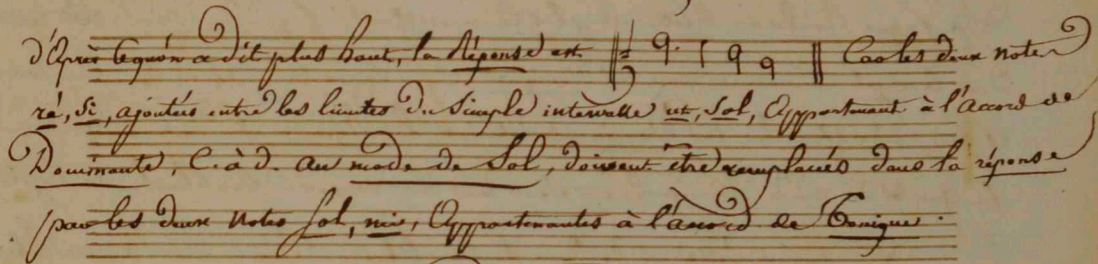 d'Après ce qu'on a dit plus haut, la Réponse est Car les deux notes
ré, si, ajoutées entre les limites du simple intervalle ut, sol, Appartenant à l'accord de
Dominante, C. à d. au mode de Sol, doivent être remplacés dans la réponse
par les deux notes sol, mi, Appartenantes à l'accord de Tonique.